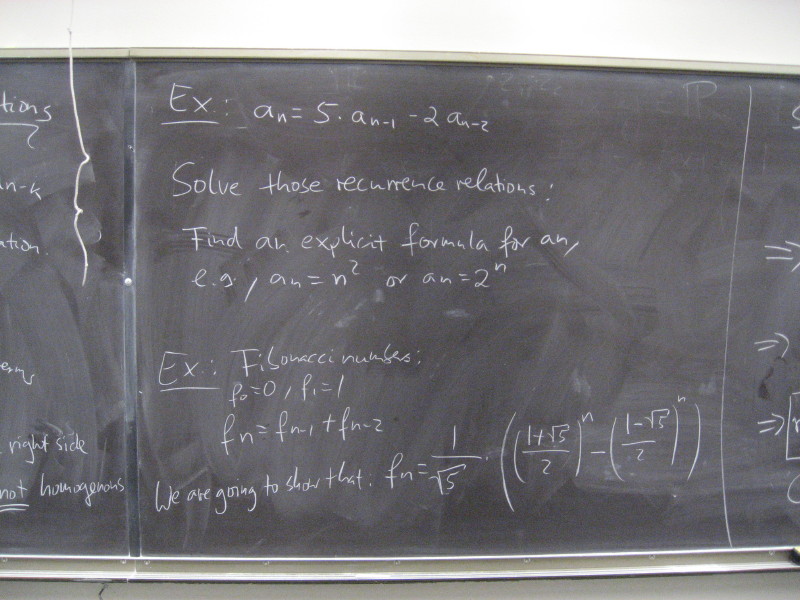 tions
n-k
ation.
right side
not homogenous
Ex: aₙ = 5·aₙ₋₁ - 2aₙ₋₂
Solve those recurrence relations:
Find an explicit formula for aₙ,
e.g., aₙ = n² or aₙ = 2ⁿ
Ex: Fibonacci numbers:
f₀=0, f₁=1
fₙ = fₙ₋₁ + fₙ₋₂
We are going to show that: fₙ = 1/√5 · (((1+√5)/2)ⁿ - ((1-√5)/2)ⁿ)
⇒
⇒
⇒